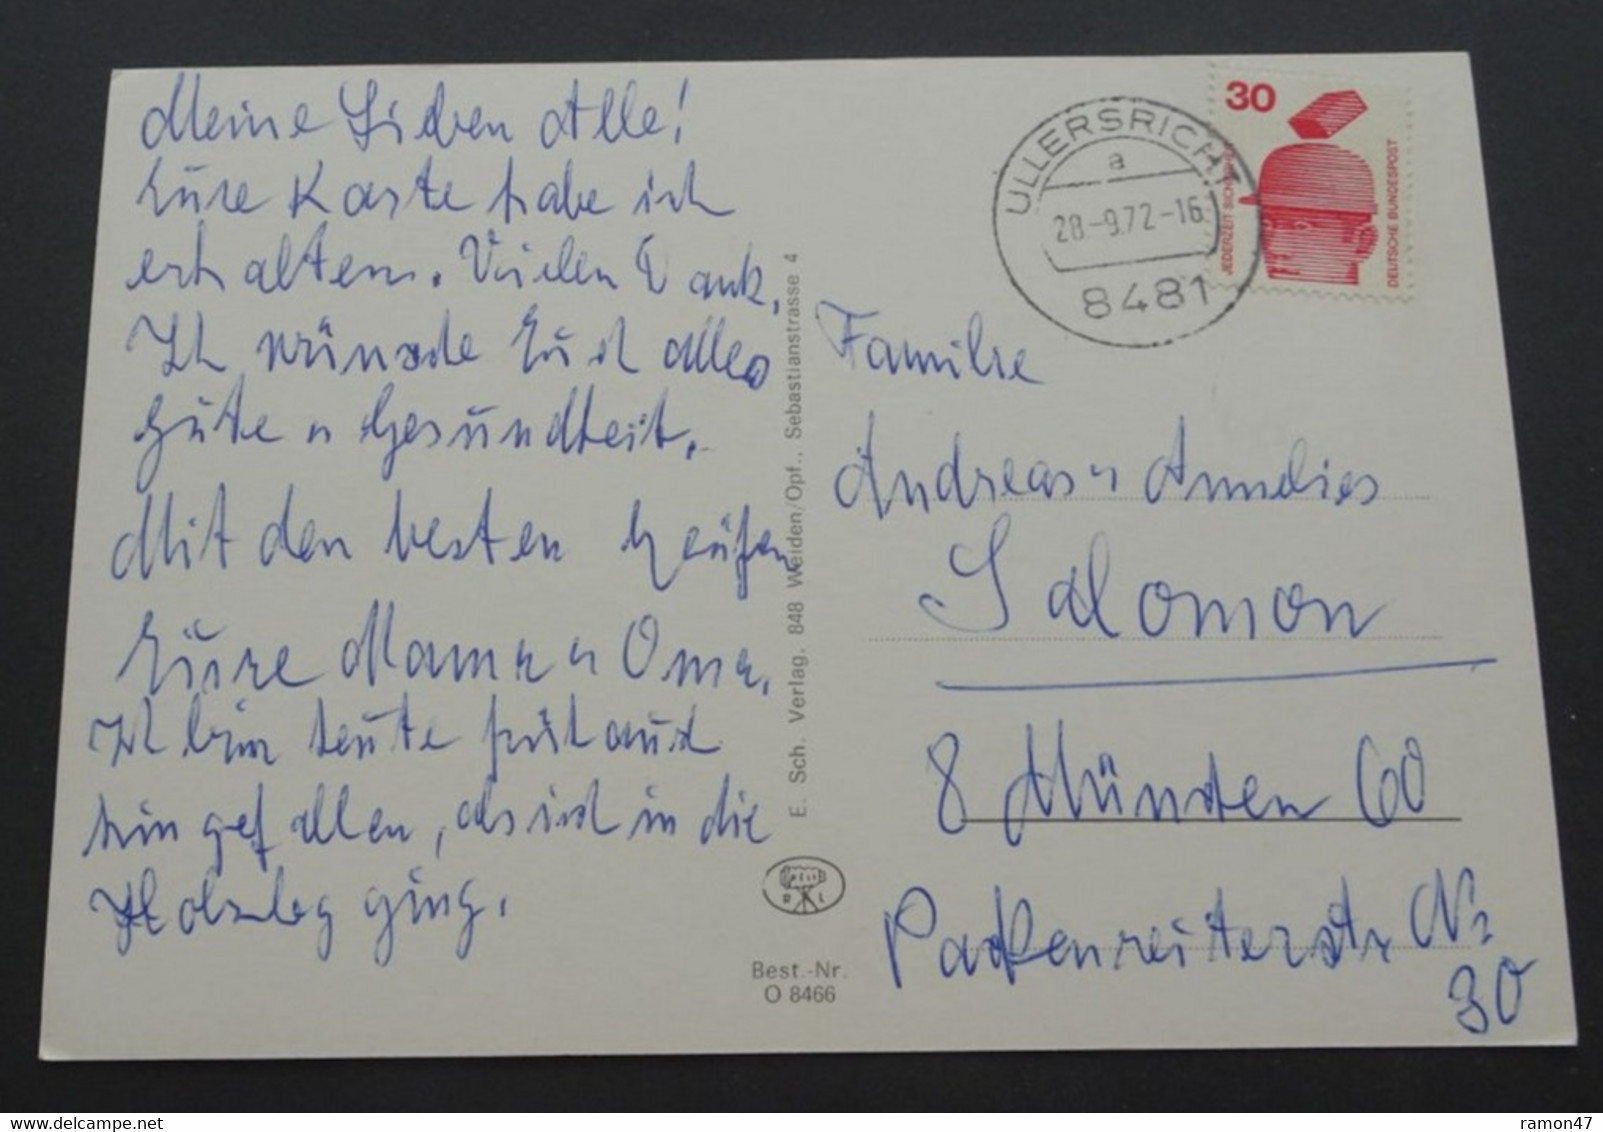 Meine Lieben Alle!
Eure Karte habe ich
erhalten. Vielen Dank,
Ich wünsche Euch alles
Gute u Gesundheit.
Mit den besten Grüßen
Eure Mama u Oma.
Ich bin heute früh auch
hin gefallen, als ich in die
Holzleg ging.
E. Sch. Verlag. 848 Weiden/Opf., Sebastianstrasse 4
Best.-Nr.
O 8466
ULLERSRICHT
a
28.-9.72-16
8481
30
JEDERZEIT SICHERHEIT
DEUTSCHE BUNDESPOST
Familie
Andreas u Annelies
Salomon
8 München 60
Packenreiterstr Nr
30
www.delcampe.net
ramon47